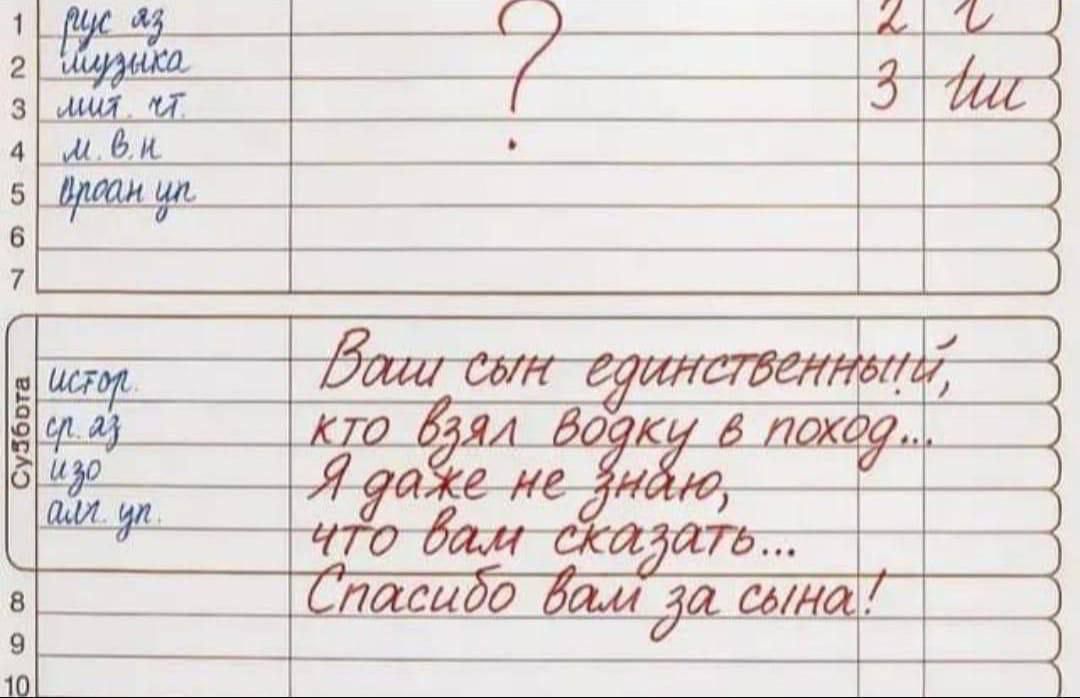 1 рус яз 2
2 музыка
3 лит. чт. 3
4 м. в. н
5
6
7
Суббота
истор.
ср. яз
изо
алг. уп.
Ваш сын единственный,
кто взял водку в поход...
Я даже не знаю,
что вам сказать...
Спасибо вам за сына!
8
9
10